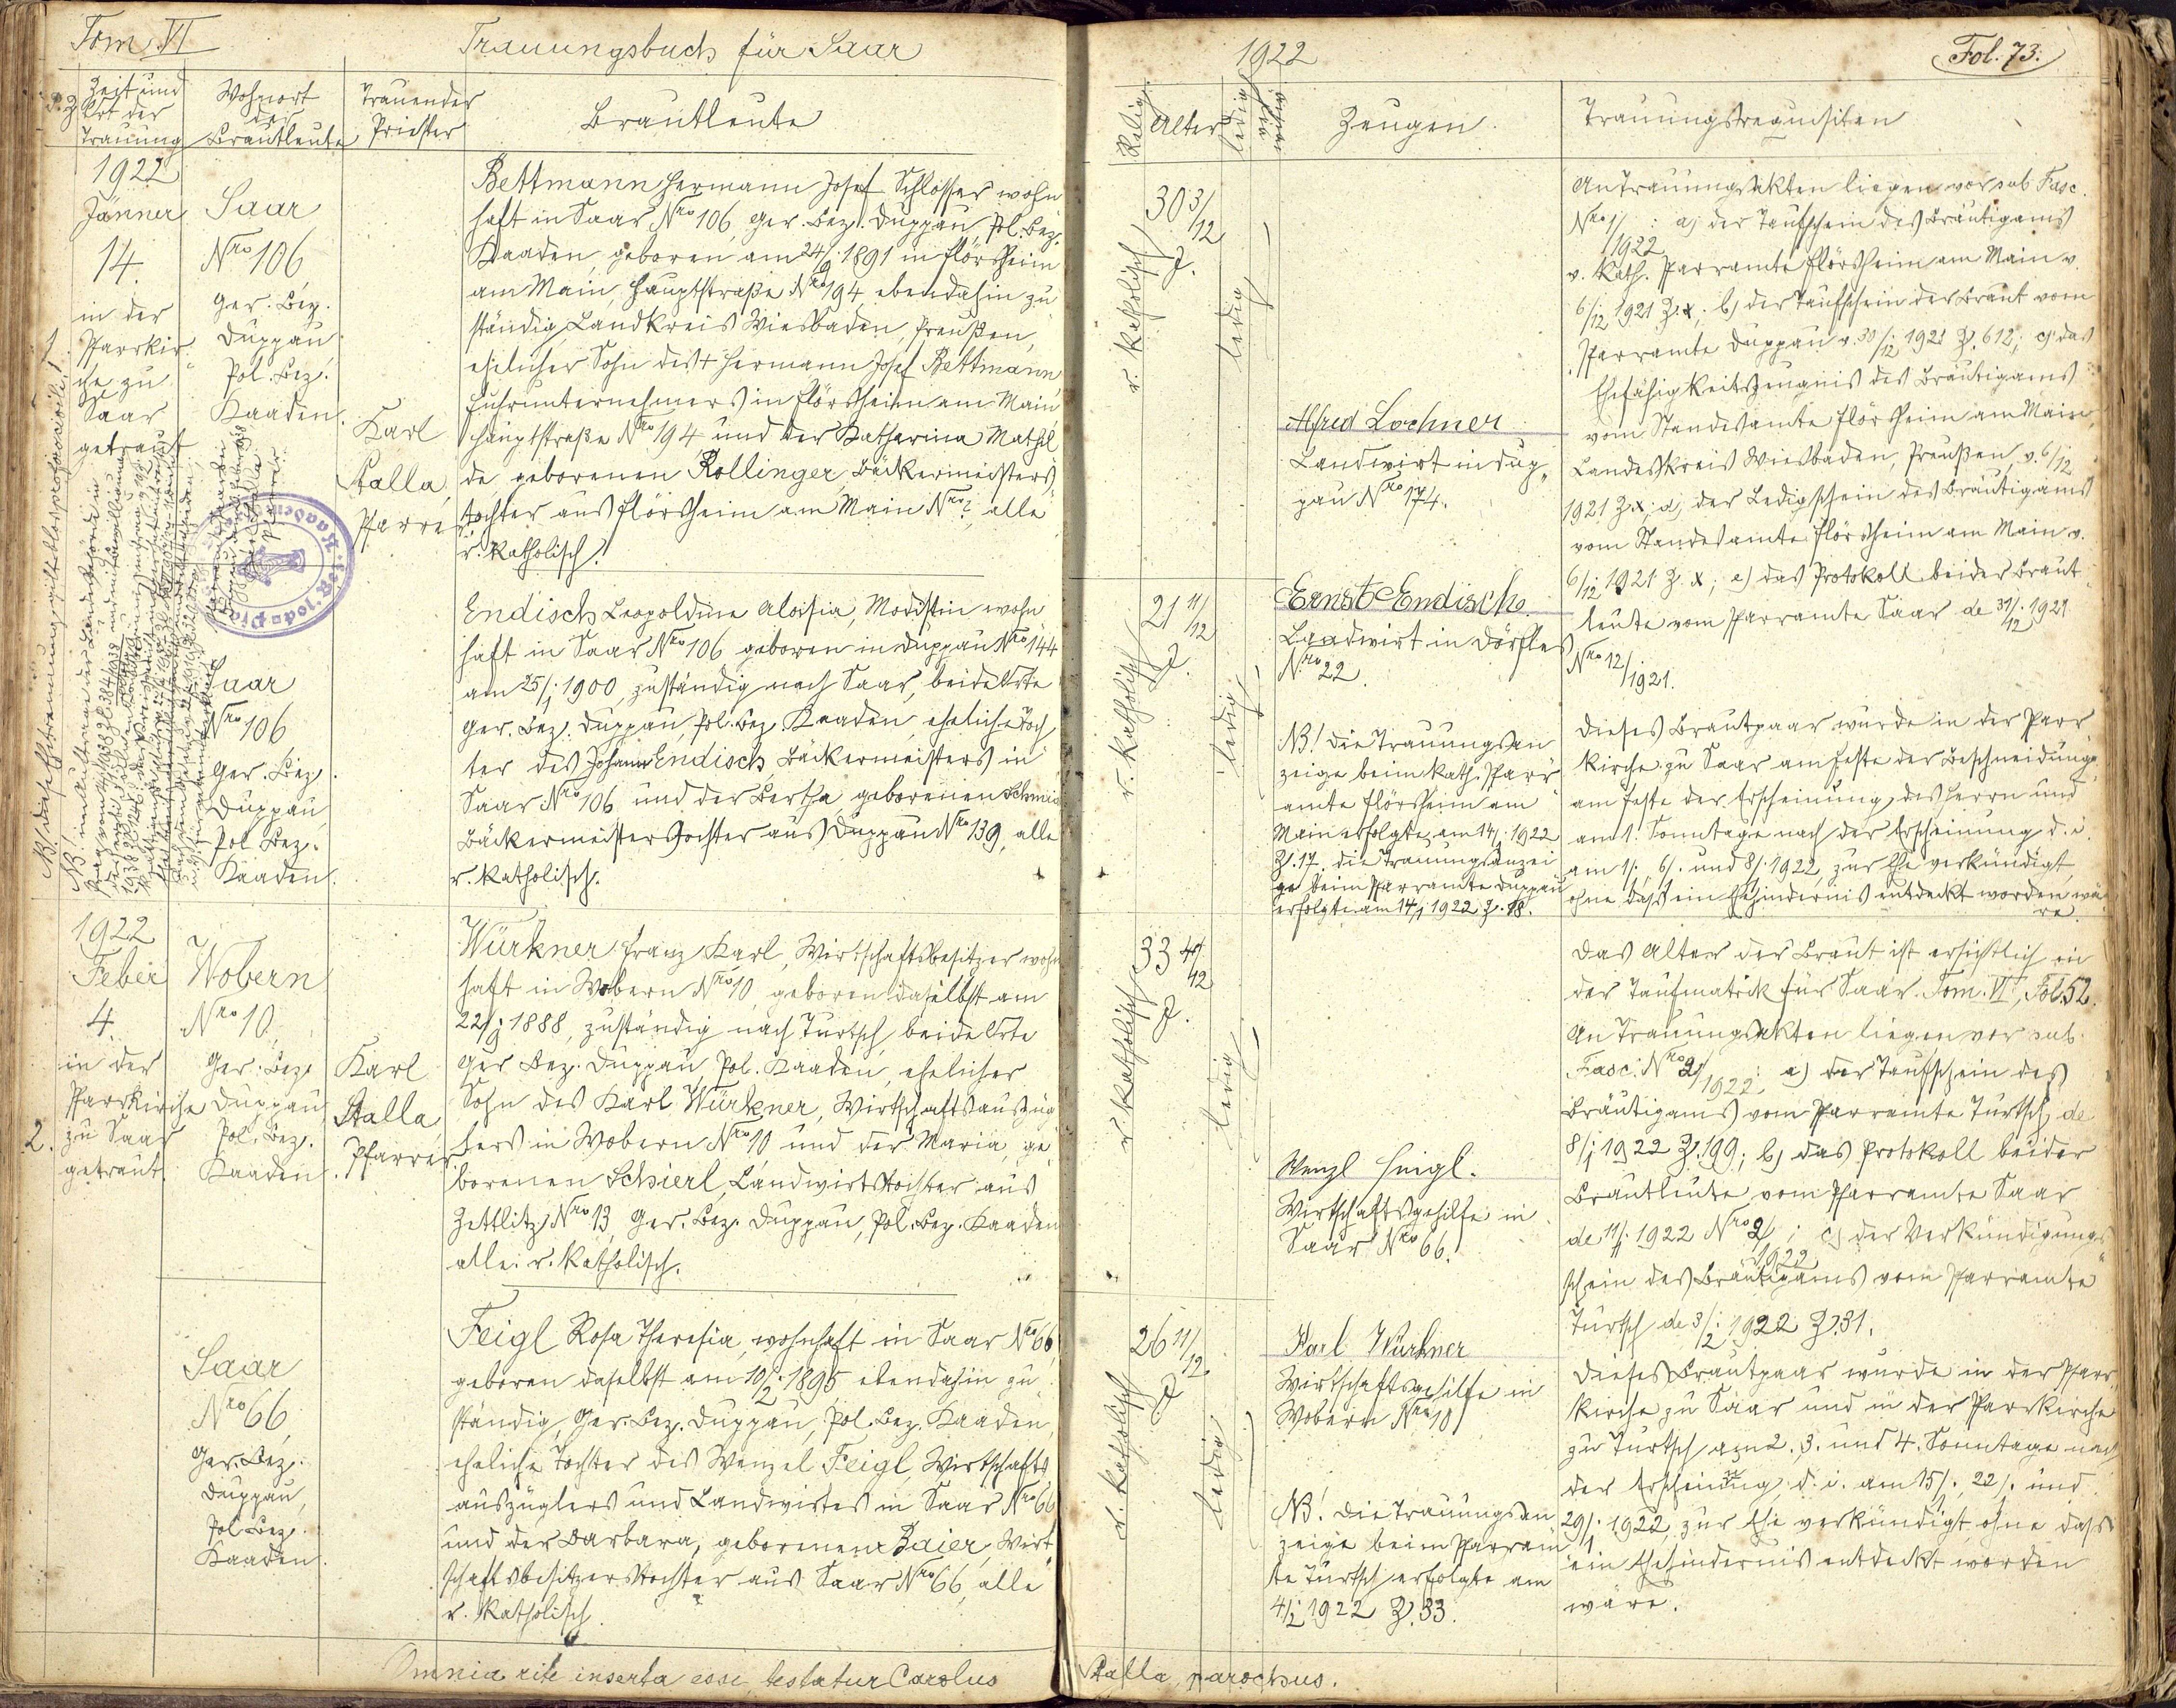 Tom VI
Trauungsbuch für Saar
1922
Fol. 73.
P. Z.
Zeit und
Ort der
Trauung
Wohnort
der
Brautleute
Trauender
Priester
Brautleute
Relig.
Alter
ledig
Zeugen.
Trauungsrequisiten
1
1922
Jänner
14.
in der
Pfarrkir„
che zu
Saar
getraut
Saar
Nro 106
Ger. Bez.
Duppau
Pol. Bez.
Kaaden.
Karl
Stalla,
Pfarrer
Bettmann Hermann Josef Schlosser wohn
haft in Saar Nro 106, Ger. Bez. Duppau, Pol. Bez.
Kaaden, geboren am 24/9. 1891 in Flörsheim
am Main, Hauptstraße Nro 194, ebendahin zu
ständig, Landkreis Wiesbaden, Preußen,
ehelicher Sohn des + Hermann Josef Bettmann
Fuhrunternehmers in Flörsheim am Main
Hauptstraße Nro 194 und der Katharina Mathil
de geborenen Rollinger, Bäckermeisters
tochter aus Flörsheim am Main Nro ?, alle
r. katholisch.
Saar
Nro 106
Ger. Bez.
Duppau,
Pol. Bez.
Kaaden.
Endisch Leopoldine Aloisia, Modistin wohn
haft in Saar Nro 106 geboren in Duppau Nro 144
am 25/1. 1900, zuständig nach Saar, beide Orte
Ger. Bez. Duppau, Pol. Bez. Kaaden, eheliche Toch
ter des Johann Endisch, Bäckermeisters in
Saar Nro 106 und der Bertha geborenen Schmid
Bäckermeisterstochter aus Duppau Nro 139, alle
r. katholisch.
r. katholisch
30 3/12
J.
ledig
Alfred Lochner
Landwirt in Dup„
pau Nro 174.
r. katholisch
21 11/12
J.
ledig
Ernst Endisch
Landwirt in Dörfles
Nro 22.
NB! Die Trauungsan
zeige beim kath. Pfarr
amte Flörsheim am
Main erfolgte am 14/1. 1922
Z. 17. Die Trauungsanzei
ge beim Pfarramte Duppau
erfolgte am 14/1 1922 Z. 18.
An Trauungsakten liegen vor sub Fasc.
Nro 1/1922 : a) der Taufschein des Bräutigams
v. kath. Pfarramte Flörsheim am Main v.
6/12 1921 Z. x; b) der Taufschein der Braut vom
Pfarramte Duppau v. 30/12 1921 Z. 612; c) das
Ehefähigkeitszeugnis des Bräutigams
vom Standesamte Flörsheim am Main,
Landeskreis Wiesbaden, Preußen, v. 6/12
1921 Z. x; d) der Ledigschein des Bräutigams
vom Standesamte Flörsheim am Main v.
6/12 1921 Z. x; e) das Protokoll beider Braut
leute vom Pfarramte Saar de 31/12. 1921
Nro 12/1921.
Dieses Brautpaar wurde in der Pfarr
kirche zu Saar am Feste der Beschneidung,
am Feste der Erscheinung des Herrn und
am 1. Sonntage nach der Erscheinung d. i.
am 1/., 6/. und 8/1. 1922, zur Ehe verkündigt,
ohne daß ein Ehehindernis entdeckt worden wä
re.
2.
1922
Feber
4.
in der
Pfarrkirche
zu Saar
getraut.
Wobern
Nro 10
Ger. Bez.
Duppau,
Pol. Bez.
Kaaden.
Karl
Stalla
Pfarrer
Würkner Franz Karl, Wirtschaftsbesitzer wohn
haft in Wobern Nro 10, geboren daselbst am
1888, zuständig nach Turtsch, beide Orte
Ger. Bez. Duppau, Pol. Kaaden, ehelicher
Sohn des Karl Würkner, Wirtschaftsauszüg
lers in Wobern Nro 10 und der Maria, ge
borenen Schierl, Landwirtstochter aus
Zettlitz Nro 13, Ger. Bez. Duppau, Pol. Bez. Kaaden
alle r. katholisch.
Saar
Nro 66,
Ger. Bez.
Duppau,
Pol. Bez.
Kaaden.
Feigl Rosa Theresia, wohnhaft in Saar Nro 66,
geboren daselbst am 10/2. 1895 ebendahin zu
ständig, Ger. Bez. Duppau, Pol. Bez. Kaaden,
eheliche Tochter des Wenzel Feigl, Wirtschafts
auszüglers und Landwirtes in Saar Nro 66
und der Barbara, geborenen Zaier, Wirt
schaftsbesitzerstochter aus Saar Nro 66, alle
r. katholisch.
r. katholisch
33
J.
ledig
Wenzl Feigl.
Wirtschaftsgehilfe in
Saar Nro 66.
r. katholisch
26 11/12
J
ledig
Karl Würkner
Wirtschaftsgehilfe in
Wobern Nro 10
NB! Die Trauungsan
zeige beim Pfarram
te Turtsch erfolgte am
4/2. 1922 Z. 33.
Das Alter der Braut ist ersichtlich in
der Taufmatrik für Saar. Tom. VI, Fol. 52.
An Trauungsakten liegen vor sub.
Fasc. Nro 2/1922: a) der Taufschein des
Bräutigams vom Pfarramte Turtsch de
8/1 1922 Z. 199; b) das Protokoll beider
Brautleute vom Pfarramte Saar
de 11/1. 1922 Nro 2/1922; c) der Verkündigungs
schein des Bräutigams vom Pfarramte
Turtsch de 3/2. 1922 Z. 31.
Dieses Brautpaar wurde in der Pfarr
kirche zu Saar und in der Pfarrkirche
zu Turtsch am 2., 3. und 4. Sonntage nach
der Erscheinung d. i. am 15/., 22/. und
29/1. 1922, zur Ehe verkündigt, ohne dass
ein Ehehindernis entdeckt worden
wäre.
Omnia rite inserta esse, testatur Carolus
Stalla, parochus.